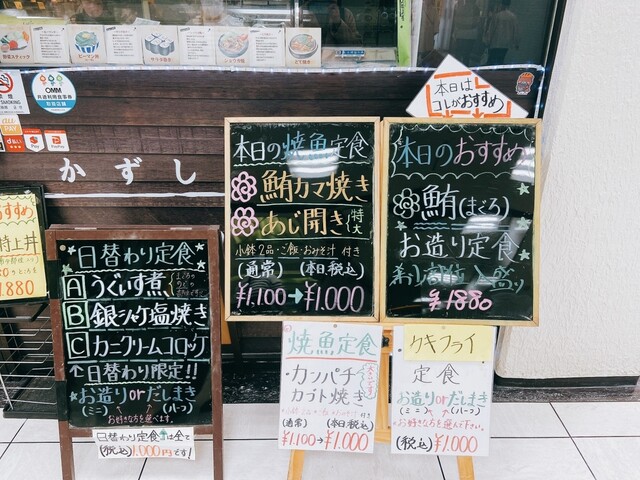 本日は
コレがおすすめ
SMOKING
OMM
共通利用食事券
取扱店舗
PayPay
d払い
かずし
おすすめ
特上丼
880
本日の焼魚定食
鮪カマ焼き
あじ開き
特大
小鉢2品・ご飯・おみそ汁 付き
(通常)
(本日、税込)
¥1.100→¥1.000
本日のおすすめ
鮪(まぐろ)
お造り定食
¥1880
日替わり定食
A うぐいす煮
B 銀シャケ塩焼き
C カニクリームコロッケ
↑日替わり限定!!
お造りorだしまき
(ミニ)
(ハーフ)
お好きな方を選べます。
日替わり定食は全て
(税込)1,000円です!
焼魚定食
・カンパチ
カブト焼き
(通常)
(本日税込)
¥1.100→¥1.000
カキフライ
定食
お造りorだしまき
(ミニ)
(ハーフ)
お好きな方を選んで下さい。
(税込)¥1000